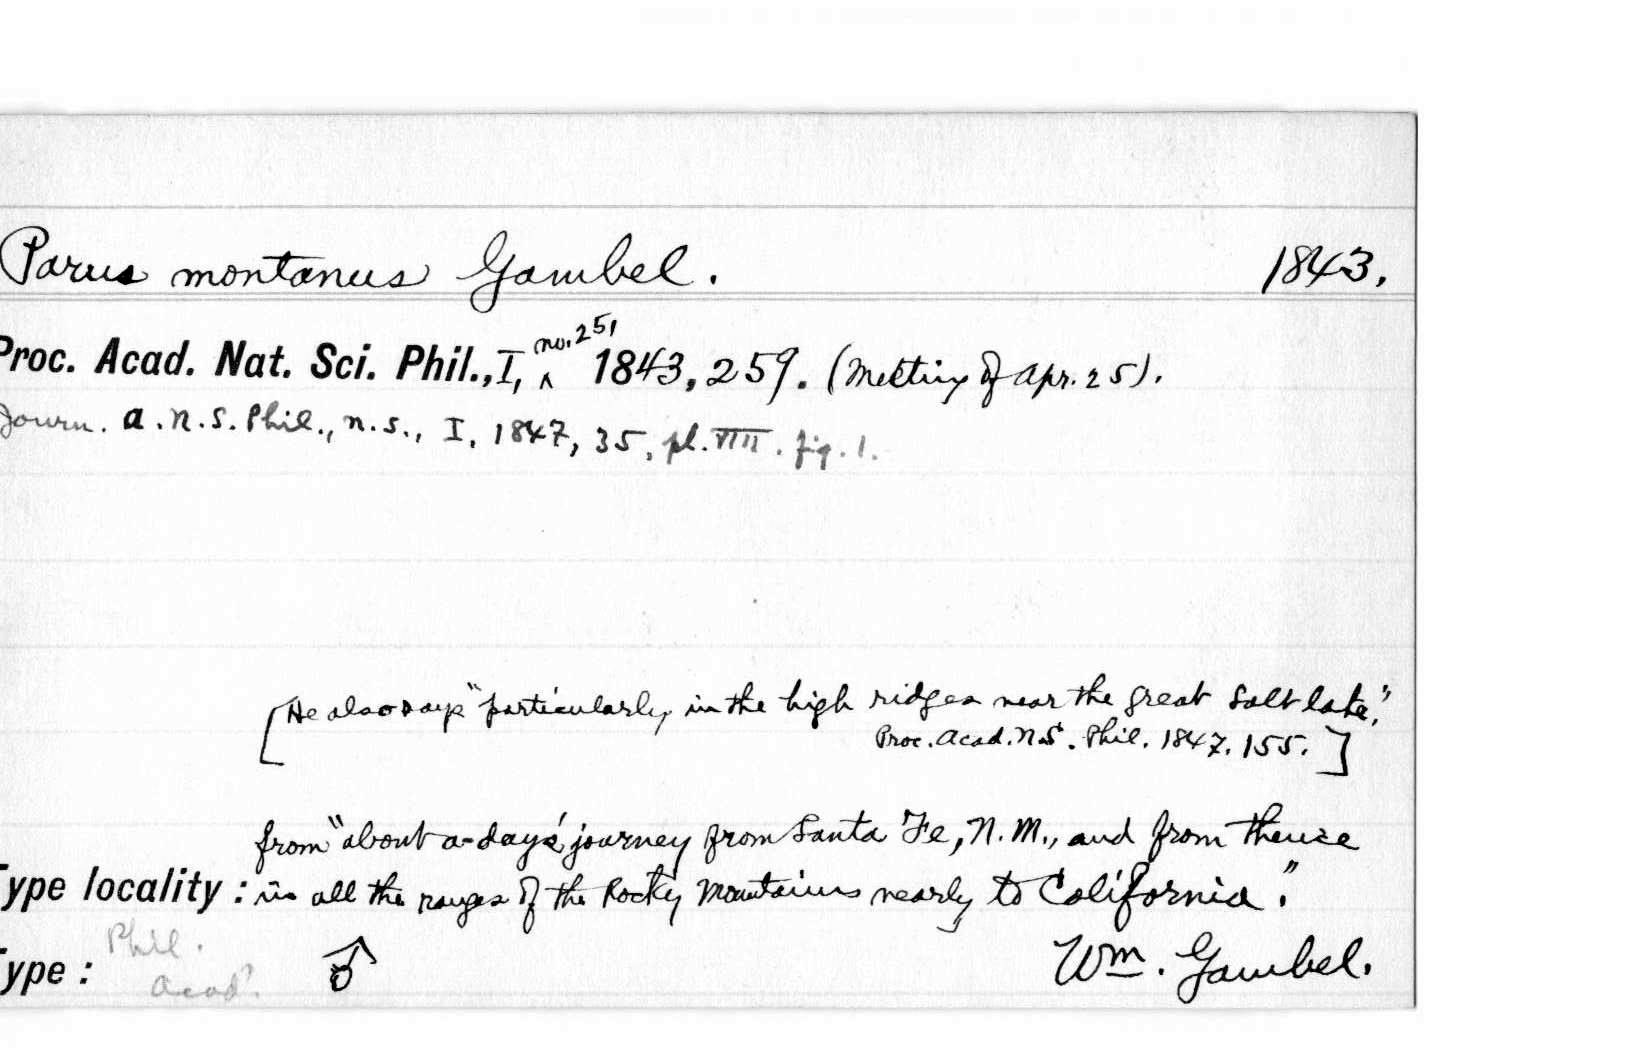 Parus montanus Gambel. 1843.
Proc. Acad. Nat. Sci. Phil., I, no. 251 1843, 259. (Meeting of Apr. 25).
Journ. A. N. S. Phil., n.s., I, 1847, 35, pl. VIII. fig. 1.
[He also says "particularly, in the high ridges near the great Salt lake."
Proc. Acad. N.S. Phil. 1847. 155.]
from "about a-day's journey from Santa Fe, N.M., and from thence
Type locality: in all the ranges of the Rocky Mountains nearly to California."
Phil.
Type: Acad. ♂ Wm. Gambel.